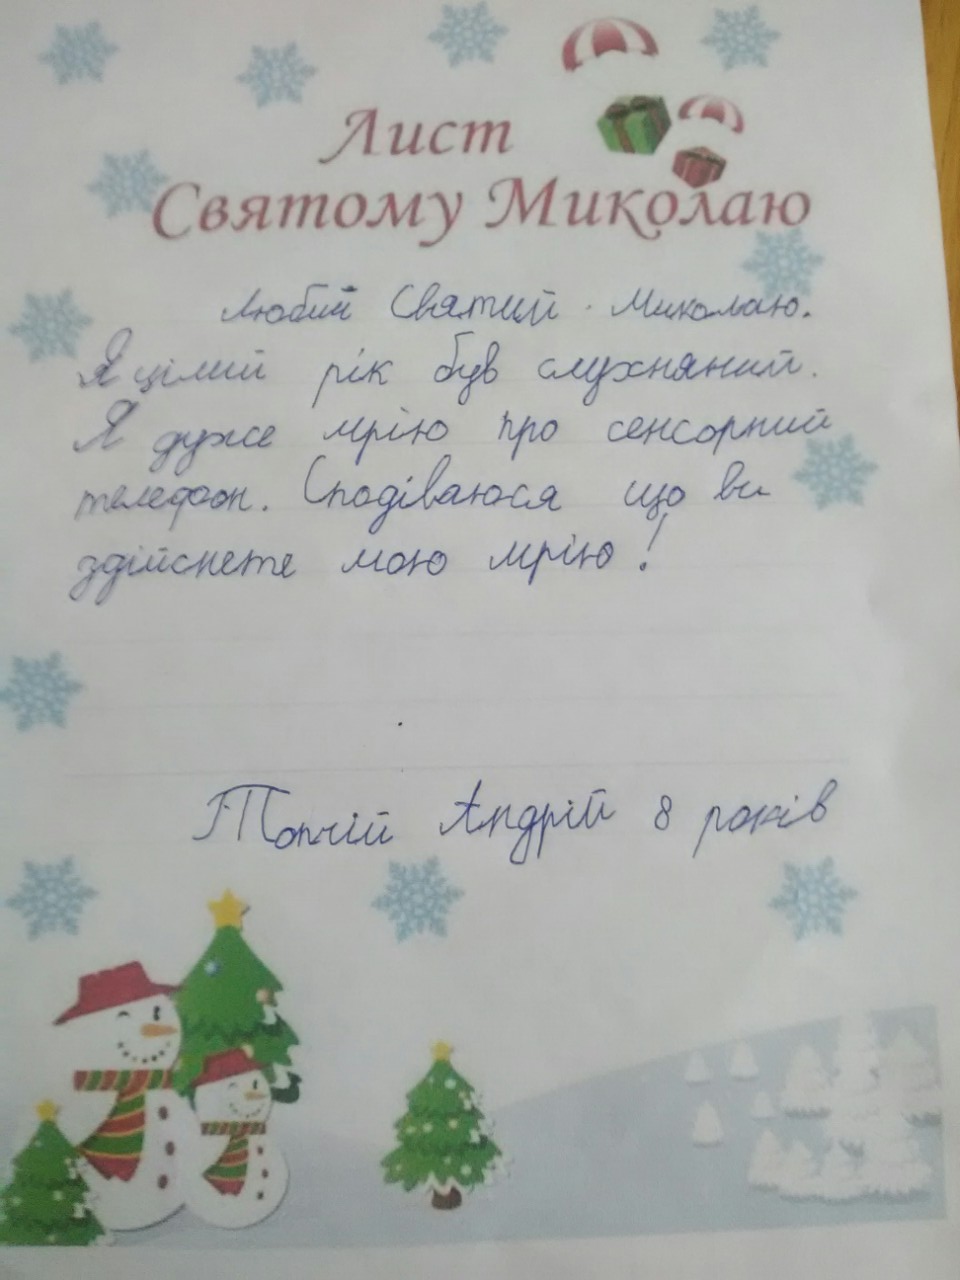 Лист
Святому Миколаю
Любий Святий Миколаю.
Я цілий рік був слухняний.
Я дуже мрію про сенсорний
телефон. Сподіваюся що ви
здійснете мою мрію!
Топчій Андрій 8 років